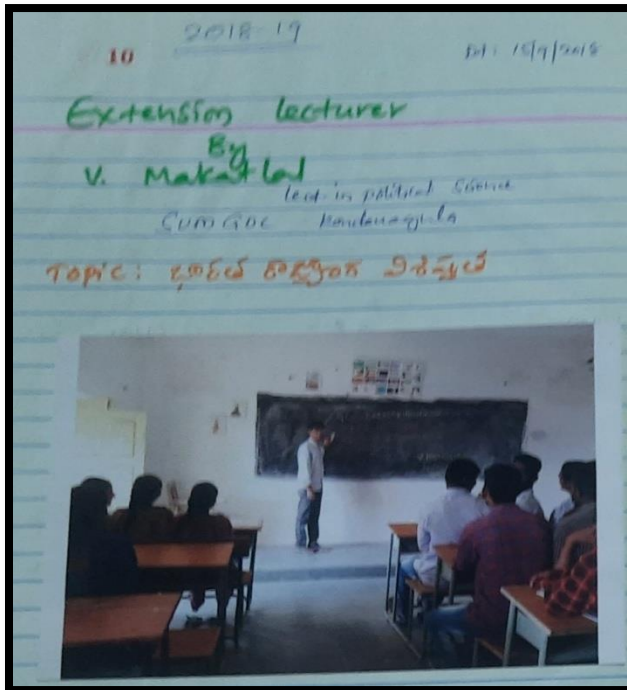 2018-19
10
Dt: 15/9/2018
Extension lecturer
By
V. Makatlal
lect in political Science
GDC
Topic: భారత రాజ్యాంగ విశిష్టత